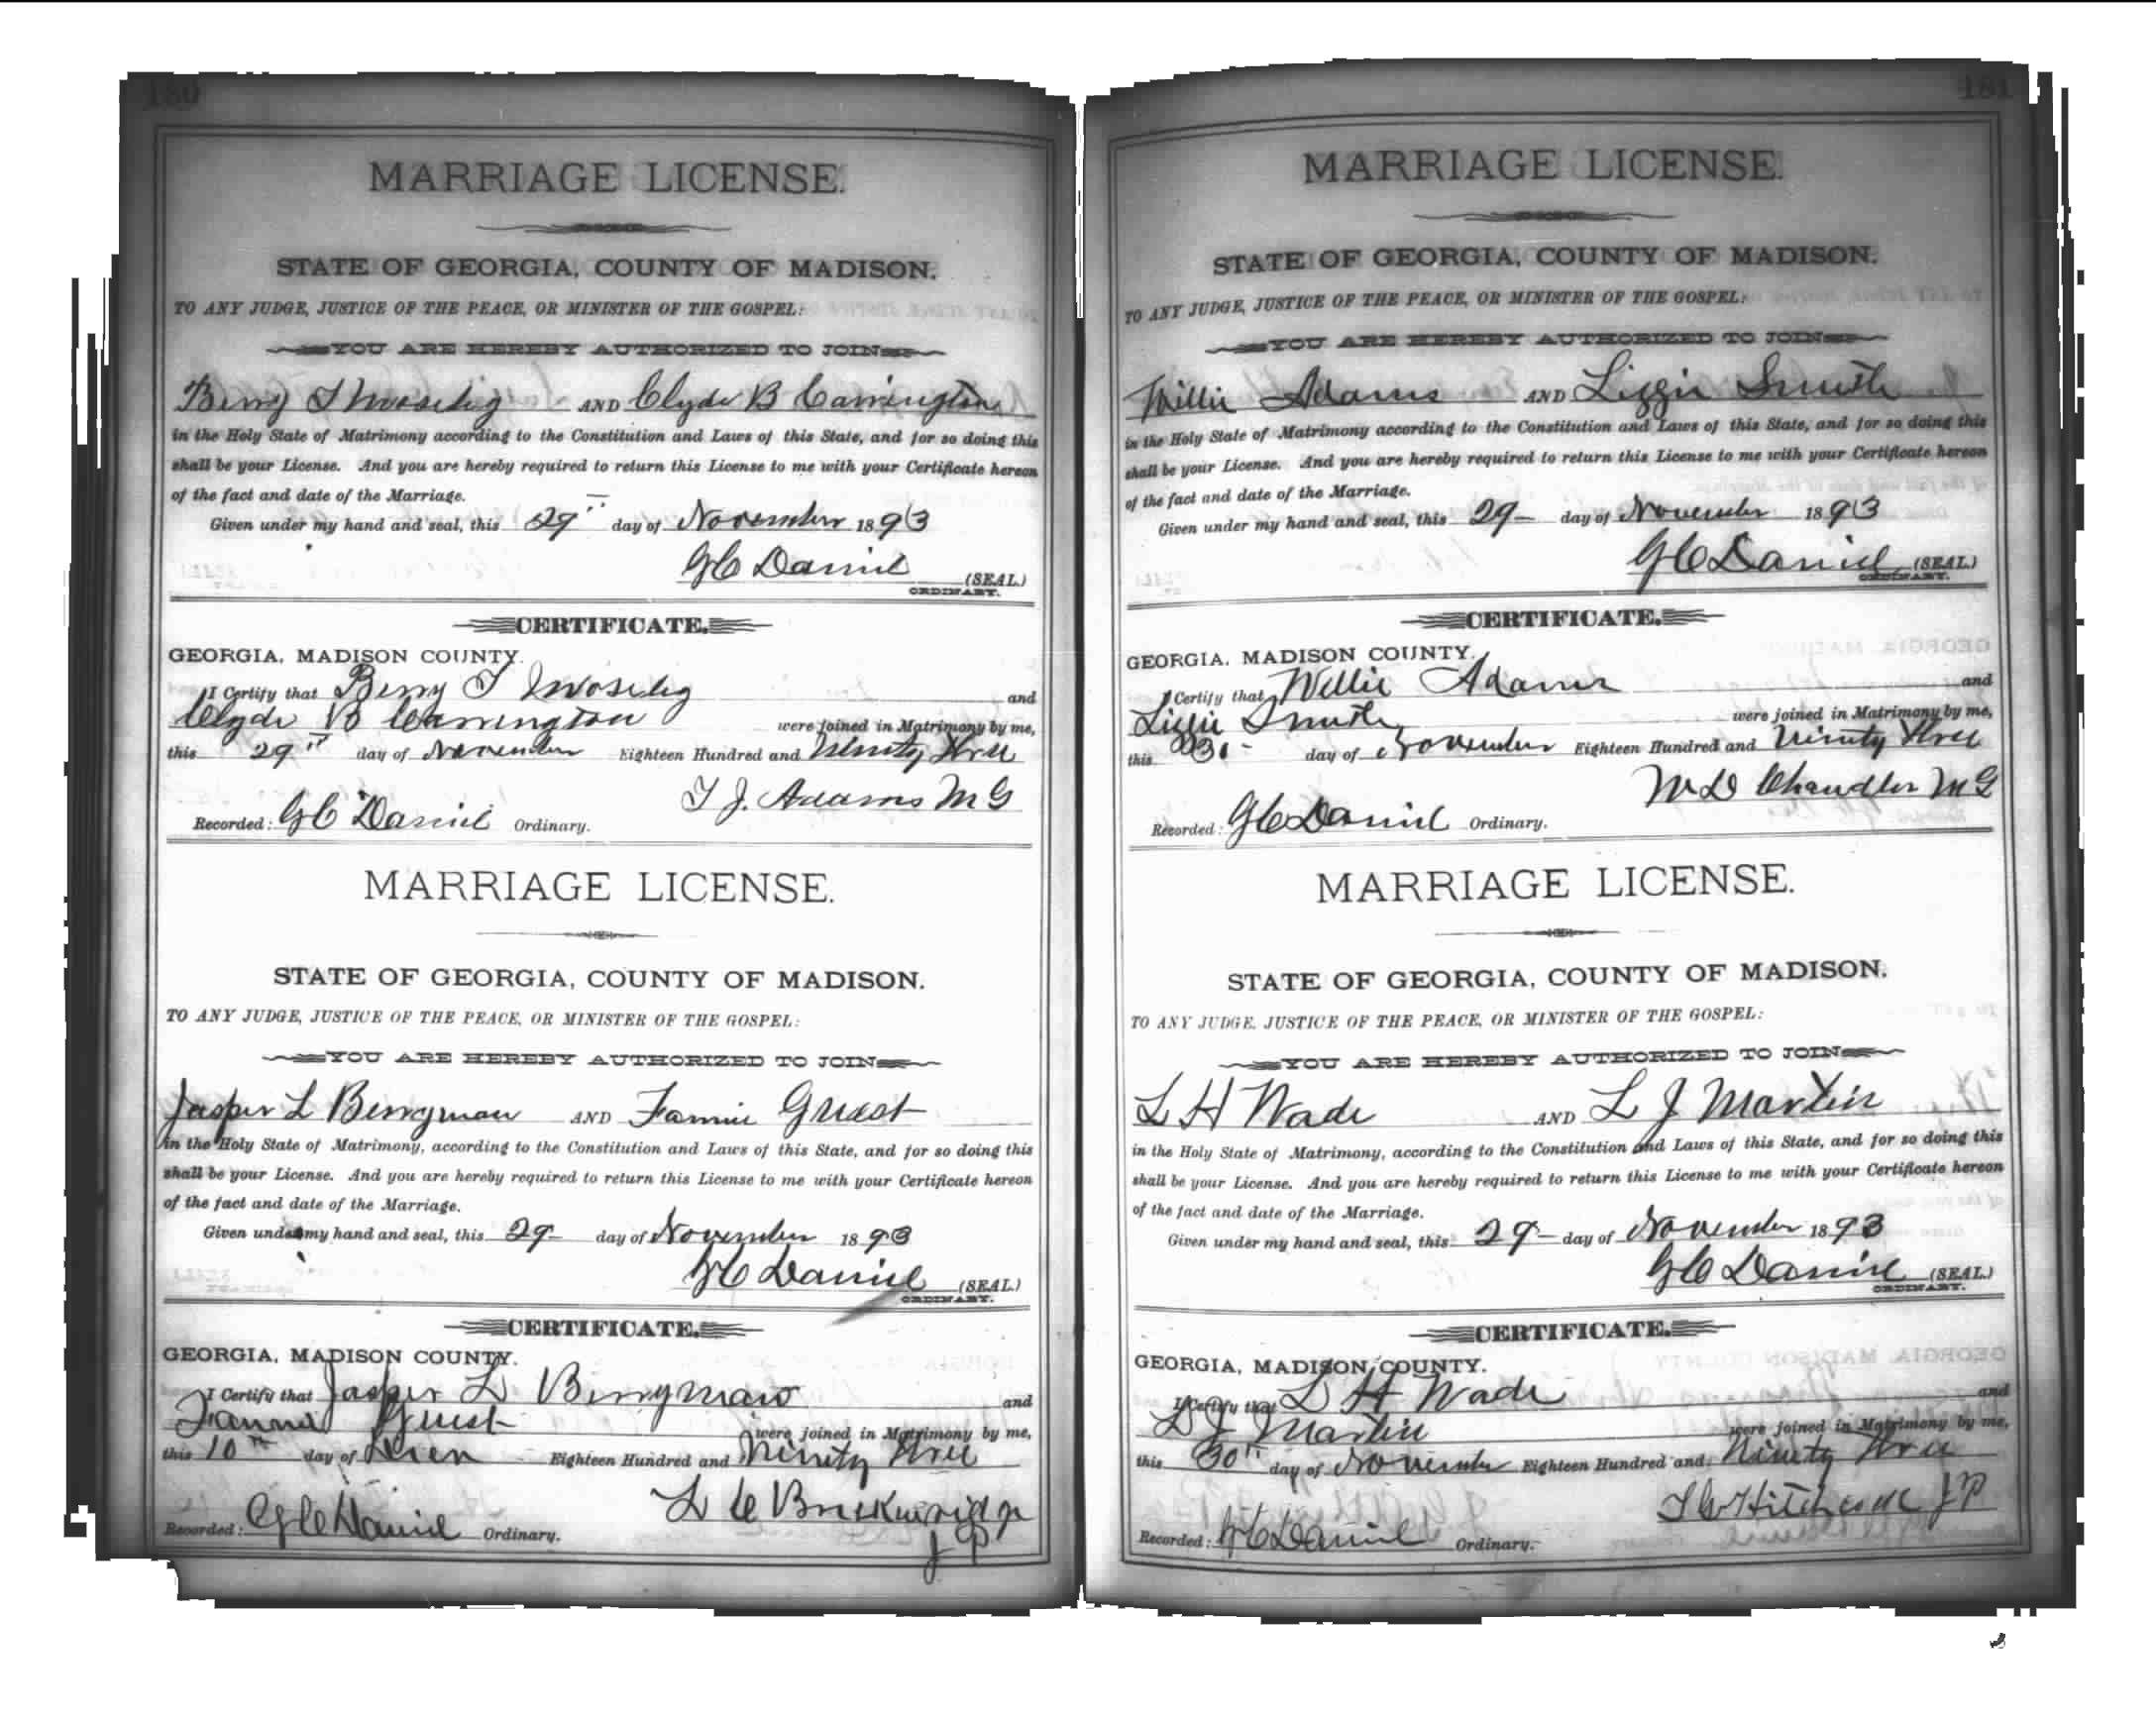 180
MARRIAGE LICENSE.
STATE OF GEORGIA, COUNTY OF MADISON.
TO ANY JUDGE, JUSTICE OF THE PEACE, OR MINISTER OF THE GOSPEL:
YOU ARE HEREBY AUTHORIZED TO JOIN
Berry T Moseley AND Clyde B Carrington
in the Holy State of Matrimony according to the Constitution and Laws of this State, and for so doing this
shall be your License. And you are hereby required to return this License to me with your Certificate hereon
of the fact and date of the Marriage.
Given under my hand and seal, this 29" day of November 1893
G C Daniel (SEAL.)
ORDINARY.
CERTIFICATE.
GEORGIA, MADISON COUNTY.
I Certify that Berry T Moseley and
Clyde B Carrington were joined in Matrimony by me,
this 29" day of November Eighteen Hundred and Ninety three
T J. Adams M G
Recorded: G C Daniel Ordinary.
MARRIAGE LICENSE.
STATE OF GEORGIA, COUNTY OF MADISON.
TO ANY JUDGE, JUSTICE OF THE PEACE, OR MINISTER OF THE GOSPEL:
YOU ARE HEREBY AUTHORIZED TO JOIN
Jasper L Berryman AND Fannie Guest
in the Holy State of Matrimony, according to the Constitution and Laws of this State, and for so doing this
shall be your License. And you are hereby required to return this License to me with your Certificate hereon
of the fact and date of the Marriage.
Given under my hand and seal, this 29 day of November 1893
G C Daniel (SEAL.)
ORDINARY.
CERTIFICATE.
GEORGIA, MADISON COUNTY.
I Certify that Jasper L Berryman and
Fannie Guest were joined in Matrimony by me,
this 10th day of Eighteen Hundred and Ninety three
L C
J P
Recorded: G C Daniel Ordinary.
181
MARRIAGE LICENSE.
STATE OF GEORGIA, COUNTY OF MADISON.
TO ANY JUDGE, JUSTICE OF THE PEACE, OR MINISTER OF THE GOSPEL:
YOU ARE HEREBY AUTHORIZED TO JOIN
Willie Adams AND Lizzie Smith
in the Holy State of Matrimony according to the Constitution and Laws of this State, and for so doing this
shall be your License. And you are hereby required to return this License to me with your Certificate hereon
of the fact and date of the Marriage.
Given under my hand and seal, this 29 day of November 1893
G C Daniel (SEAL.)
ORDINARY.
CERTIFICATE.
GEORGIA, MADISON COUNTY.
I Certify that Willie Adams and
Lizzie Smith were joined in Matrimony by me,
this 30 day of November Eighteen Hundred and Ninety three
W D Chandler M G
Recorded: G C Daniel Ordinary.
MARRIAGE LICENSE.
STATE OF GEORGIA, COUNTY OF MADISON.
TO ANY JUDGE, JUSTICE OF THE PEACE, OR MINISTER OF THE GOSPEL:
YOU ARE HEREBY AUTHORIZED TO JOIN
L H Wade AND L J Martin
in the Holy State of Matrimony, according to the Constitution and Laws of this State, and for so doing this
shall be your License. And you are hereby required to return this License to me with your Certificate hereon
of the fact and date of the Marriage.
Given under my hand and seal, this 29 day of November 1893
G C Daniel (SEAL.)
ORDINARY.
CERTIFICATE.
GEORGIA, MADISON COUNTY.
I Certify that L H Wade and
L J Martin were joined in Matrimony by me,
this 30th day of November Eighteen Hundred and Ninety three
Hitchcock J P
Recorded: G C Daniel Ordinary.